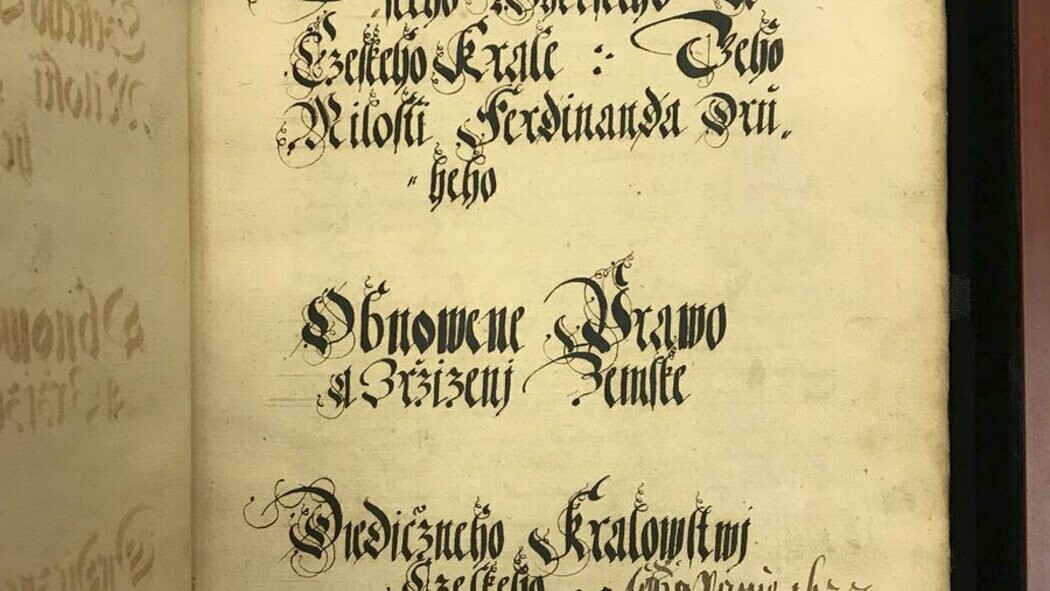 Czeskeho Krale : Geho
Milosti Ferdinanda Dru„
„heho
Obnowene Prawo
a Zržizenj Zemske
Diedičzneho Kralowstwj
Czeskeho